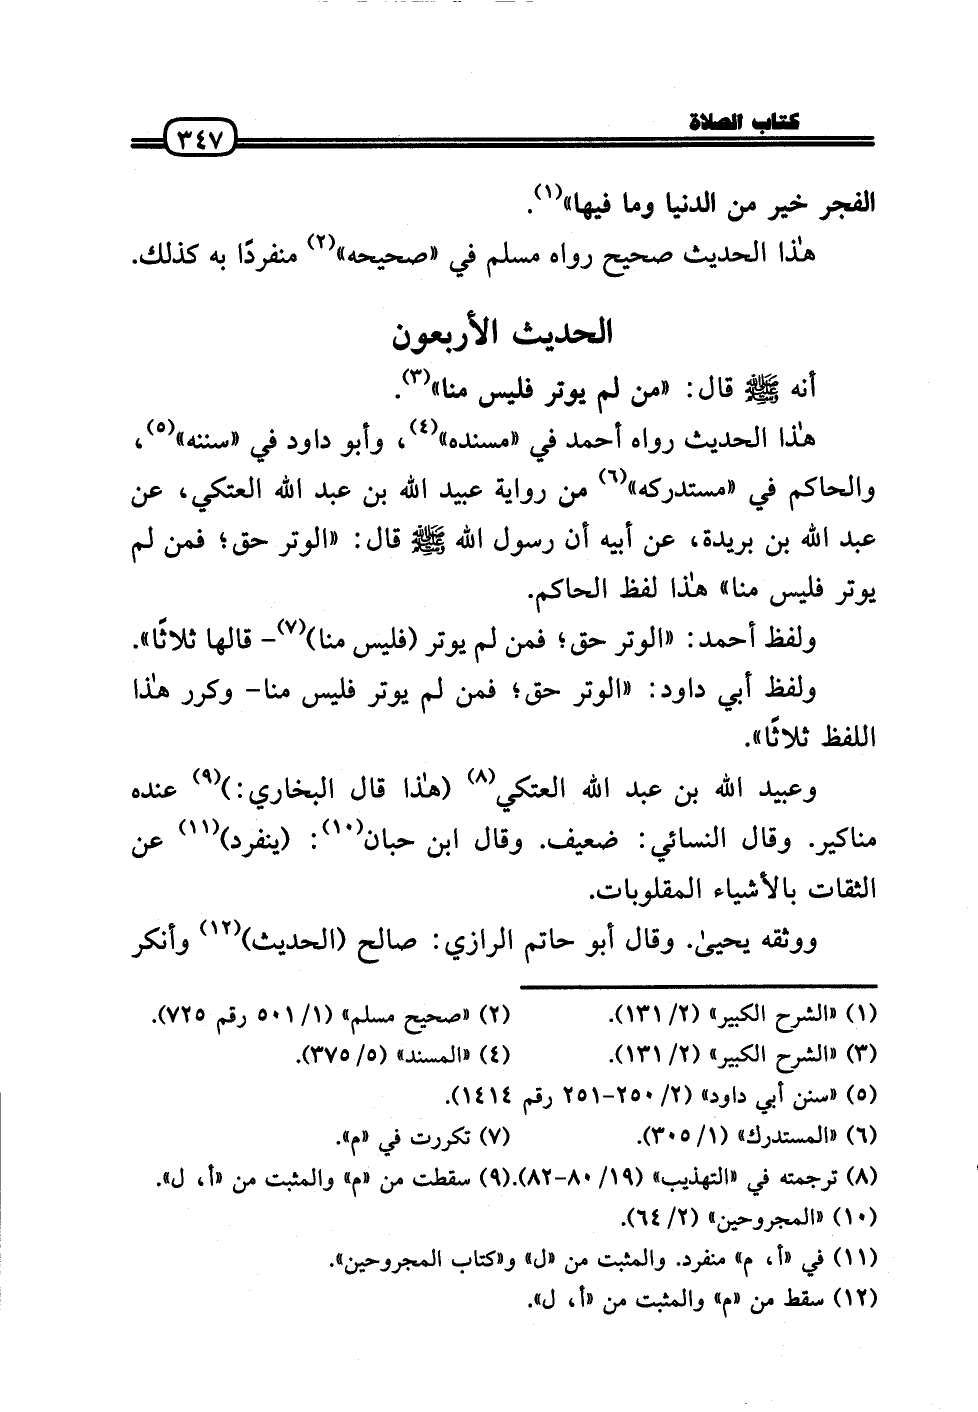 كتاب الصلاة
٣٤٧
الفجر خير من الدنيا وما فيها»(١).
هٰذا الحديث صحيح رواه مسلم في «صحيحه»(٢) منفردًا به كذلك.
الحديث الأربعون
أنه ﷺ قال: «من لم يوتر فليس منا»(٣).
هٰذا الحديث رواه أحمد في «مسنده»(٤)، وأبو داود في «سننه»(٥)،
والحاكم في «مستدركه»(٦) من رواية عبيد الله بن عبد الله العتكي، عن
عبد الله بن بريدة، عن أبيه أن رسول الله ﷺ قال: «الوتر حق؛ فمن لم
يوتر فليس منا» هٰذا لفظ الحاكم.
ولفظ أحمد: «الوتر حق؛ فمن لم يوتر (فليس منا)(٧)- قالها ثلاثًا».
ولفظ أبي داود: «الوتر حق؛ فمن لم يوتر فليس منا- وكرر هٰذا
اللفظ ثلاثًا».
وعبيد الله بن عبد الله العتكي(٨) (هٰذا قال البخاري:)(٩) عنده
مناكير. وقال النسائي: ضعيف. وقال ابن حبان(١٠): (ينفرد)(١١) عن
الثقات بالأشياء المقلوبات.
ووثقه يحيىٰ. وقال أبو حاتم الرازي: صالح (الحديث)(١٢) وأنكر
(١) «الشرح الكبير» (٢/ ١٣١). (٢) «صحيح مسلم» (١/ ٥٠١ رقم ٧٢٥).
(٣) «الشرح الكبير» (٢/ ١٣١). (٤) «المسند» (٥/ ٣٧٥).
(٥) «سنن أبي داود» (٢/ ٢٥٠-٢٥١ رقم ١٤١٤).
(٦) «المستدرك» (١/ ٣٠٥). (٧) تكررت في «م».
(٨) ترجمته في «التهذيب» (١٩/ ٨٠-٨٢).(٩) سقطت من «م» والمثبت من «أ، ل».
(١٠) «المجروحين» (٢/ ٦٤).
(١١) في «أ، م» منفرد. والمثبت من «ل» و«كتاب المجروحين».
(١٢) سقط من «م» والمثبت من «أ، ل».